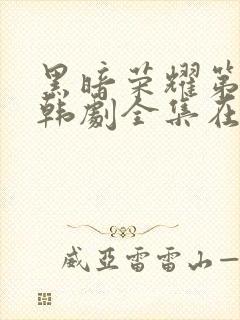 黑暗荣耀第
韩剧全集在
威亚雷雷山—